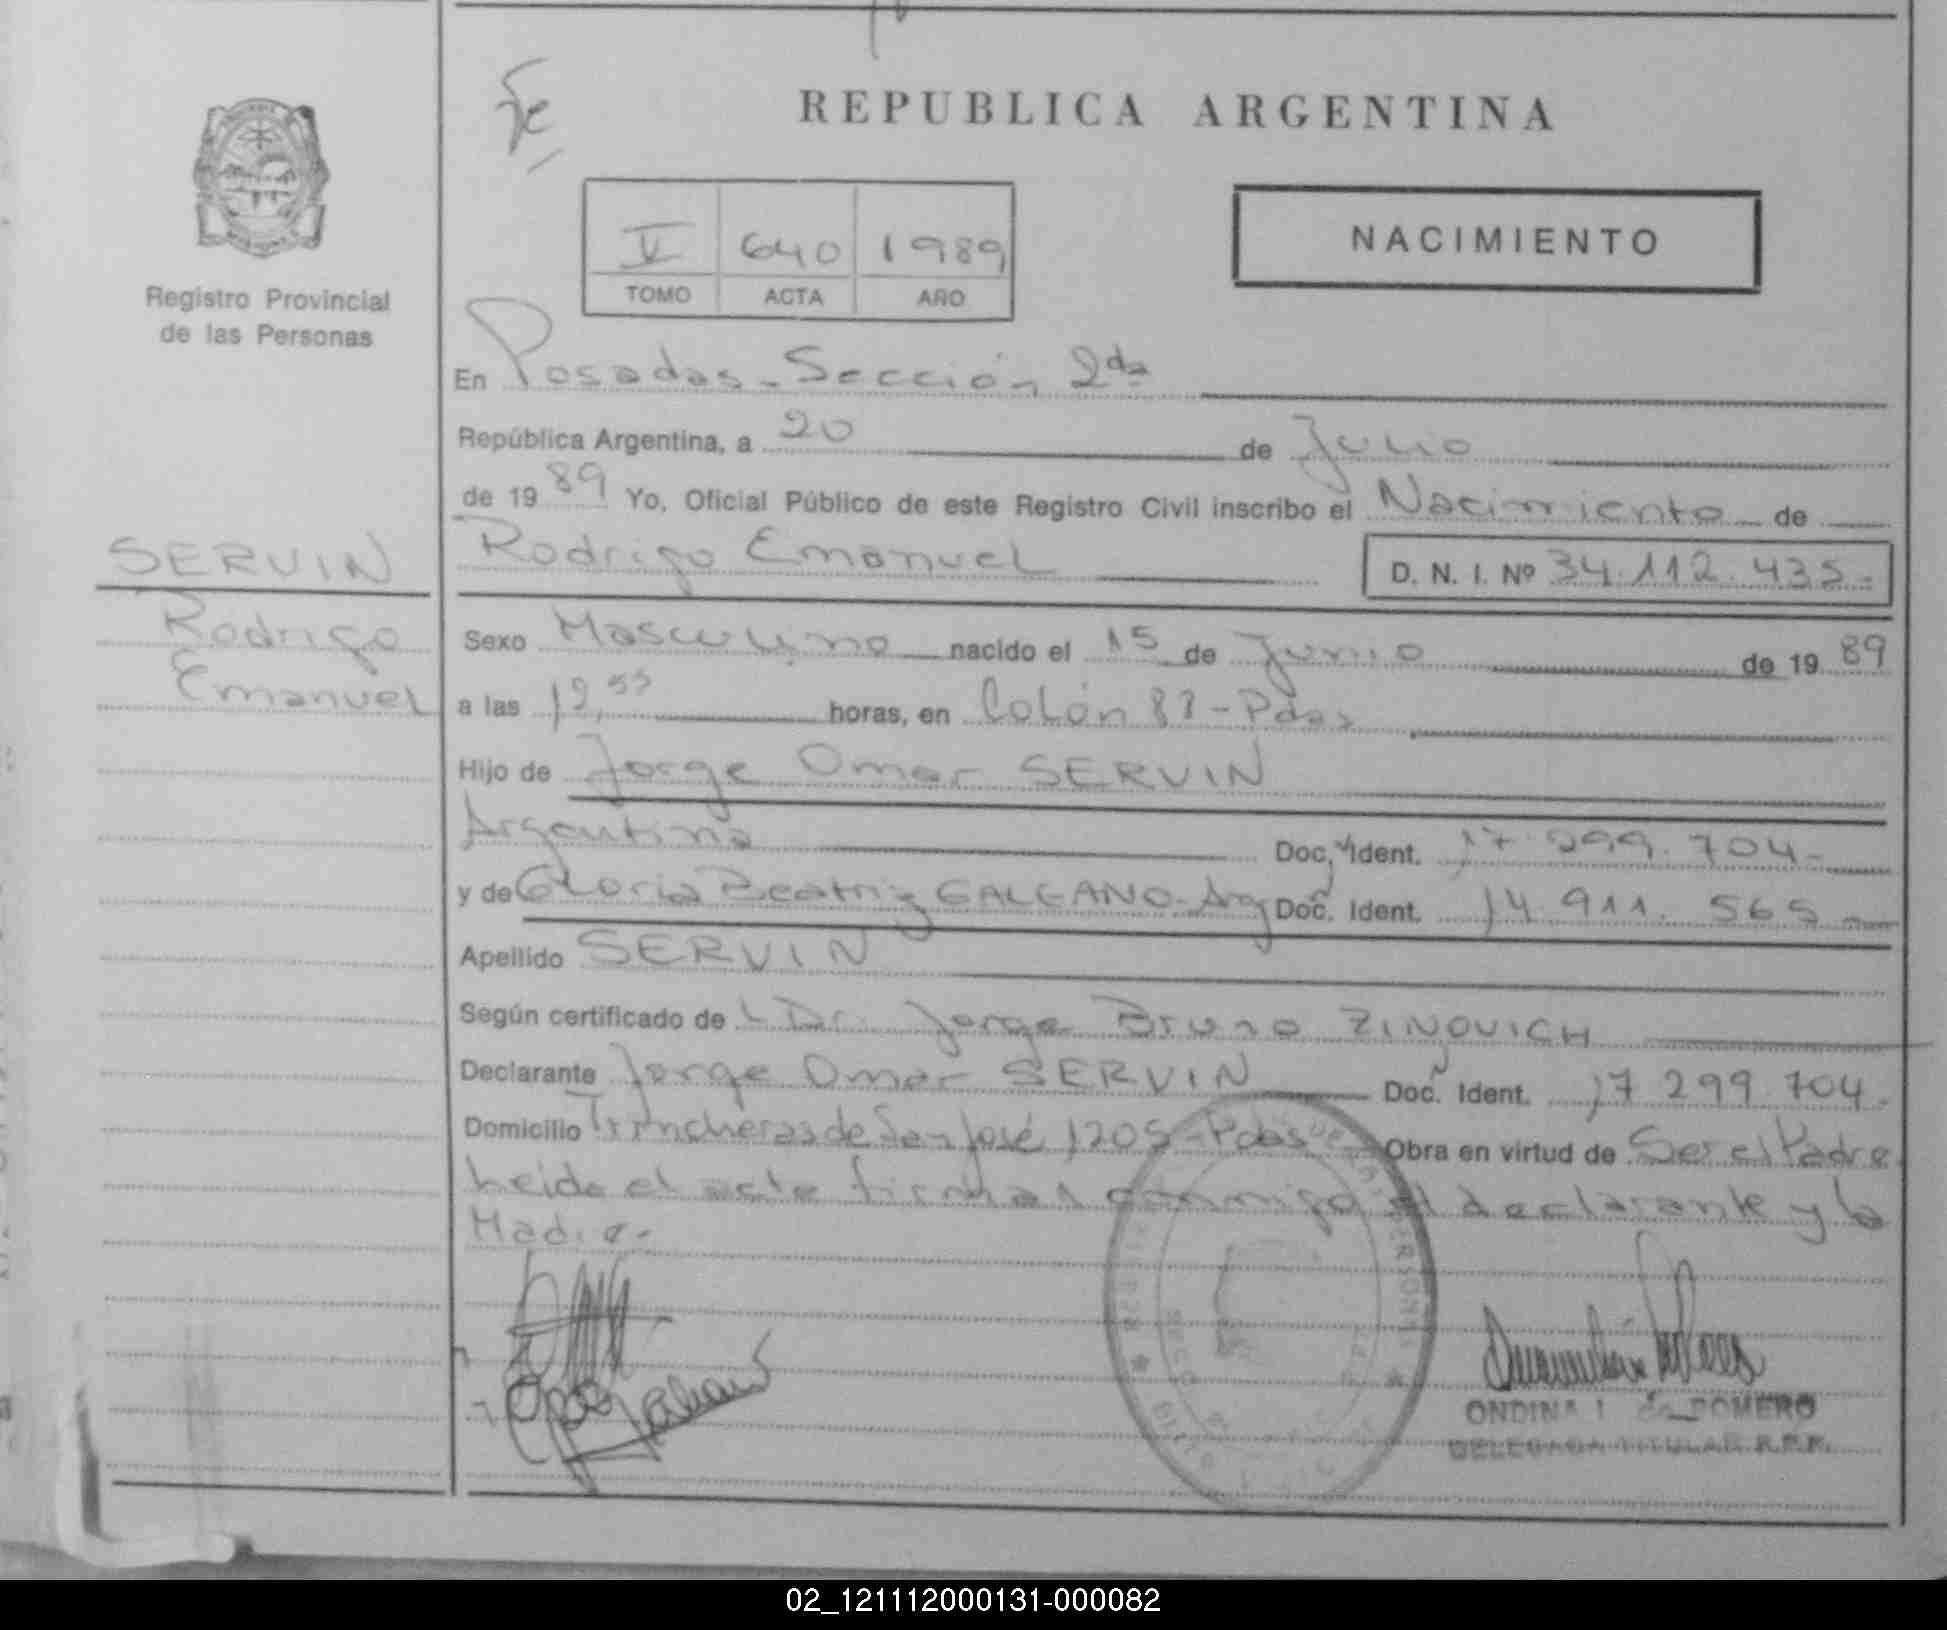 Fe
REPUBLICA ARGENTINA
V 640 1989
TOMO ACTA AÑO
NACIMIENTO
Registro Provincial
de las Personas
En Posadas - Sección 2da
República Argentina, a 20 de Julio
de 1989 Yo, Oficial Público de este Registro Civil inscribo el Nacimiento de
SERVIN
Rodrigo Emanuel D. N. I. Nº 34.112.435.-
Rodrigo
Emanuel
Sexo Masculino nacido el 15 de Junio de 1989
a las 12,55 horas, en Colón 87 - Pdas
Hijo de Jorge Omar SERVIN
Argentino Doc. Ident. 17.299.704.-
y de Gloria Beatriz GALEANO - Arg Doc. Ident. 14.911.565.-
Apellido SERVIN
Según certificado de Dr. Jorge Bruno ZINOVICH
Declarante Jorge Omar SERVIN Doc. Ident. 17.299.704.-
Domicilio Trincheras de San José 1205 - Pdas Obra en virtud de Ser el Padre
Leida el acta firman conmigo el declarante y la
Madre.-
ONDINA ROMERO
DELEGADA TITULAR R.P.P.
02_121112000131-000082